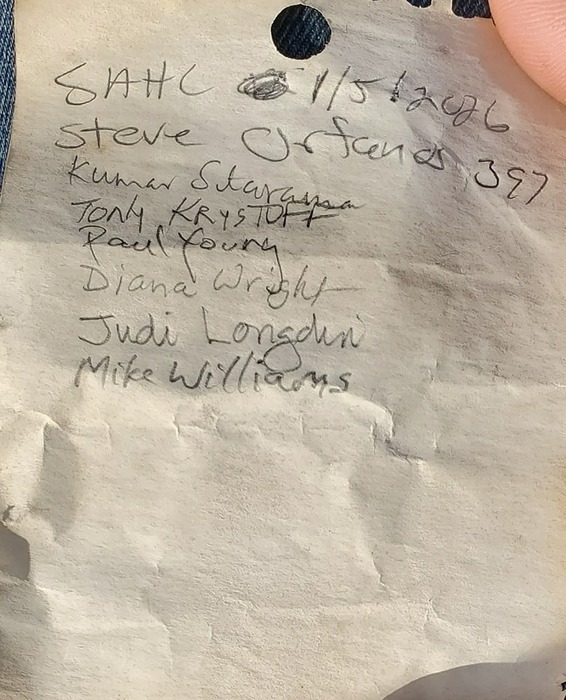 SAHC 1/5/2026
Steve Orfanos 397
Kumar
Tony KRYSTOFF
Paul Young
Diana Wright
Judi Longdin
Mike Williams